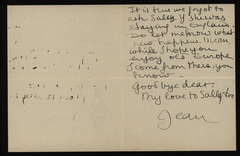 It is true we forgot to
ask Sally if she was
staying in England.
Do let me know what
new happens. Mean
while I hope you
enjoy old Europe
I come from there, you
know.
Good bye dear.
My love to Sally too
Jean